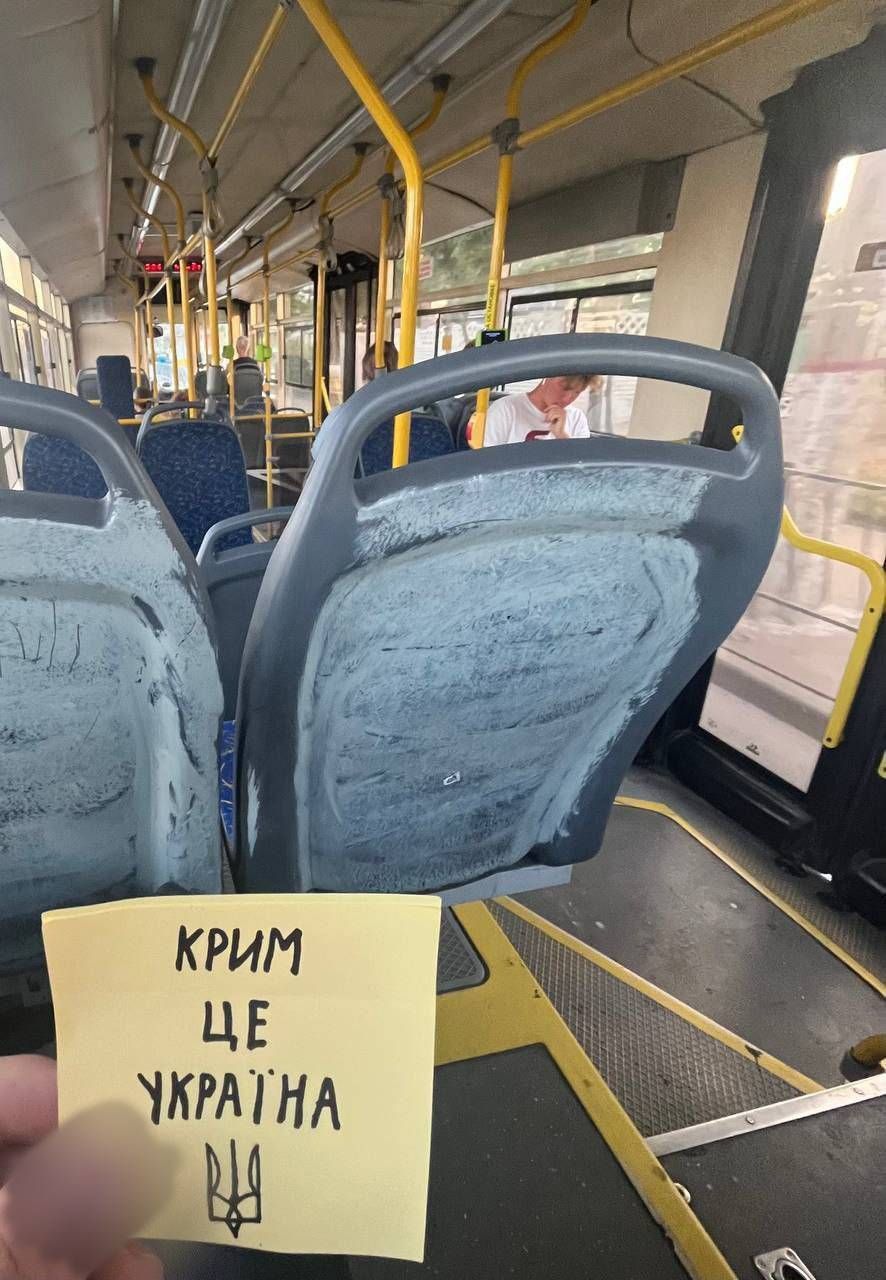 КРИМ
ЦЕ
УКРАЇНА